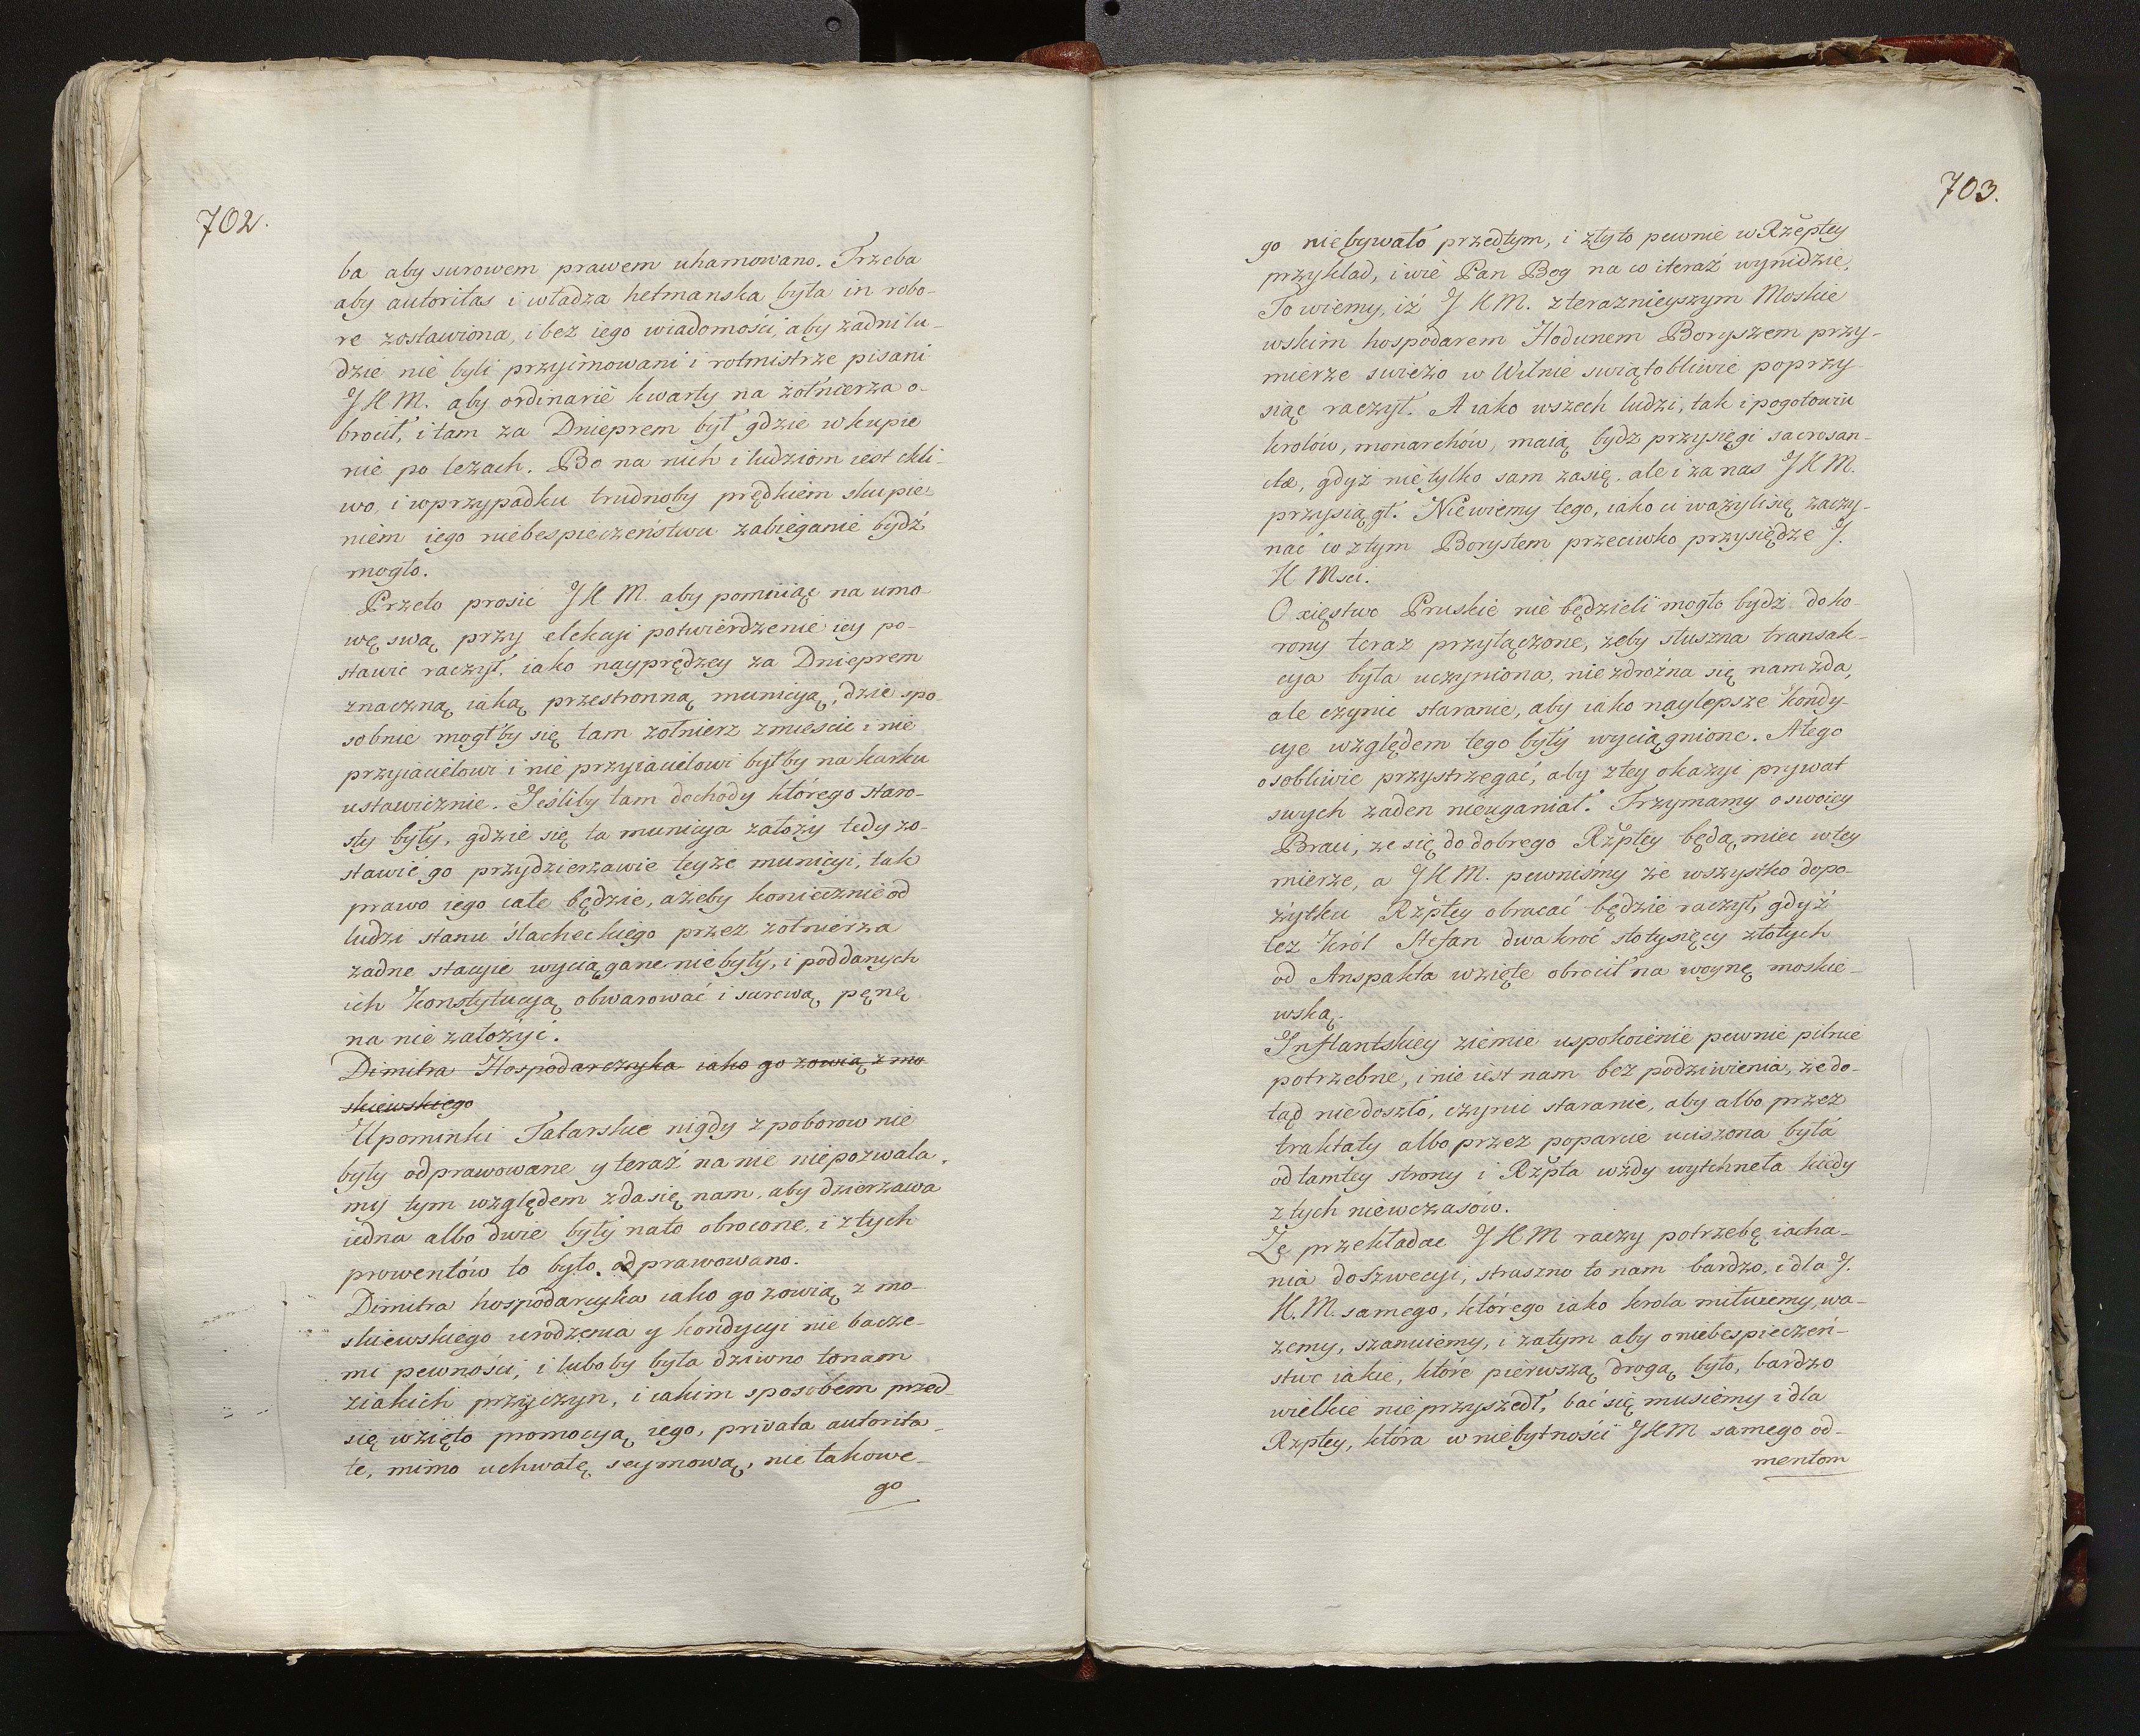 702.
ba aby surowem prawem uhamowano. Trzeba
aby autoritas i władza hetmanska była in robo-
re zostawiona, i bez iego wiadomości, aby żadni lu-
dzie nie byli przyimowani i rotmistrze pisani
JKM. aby ordinarie kwarty na żołnierza o-
brocił, i tam za Dnieprem był gdzie w kupie
nie po leżach. Bo na nich i ludziom iest ckli-
wo, i w przypadku trudnoby prędkiem skupie-
niem iego niebespieczeństwu zabieganie bydź
mogło.
Przeto prosić JKM. aby pomniąc na umo-
wę swą przy elekcyi potwierdzenie iey po-
stawić raczył, iako nayprędzey za Dnieprem
znaczną iaką przestronną municyą, dzie spo-
sobnie mogłby się tam żołnierz zmieścić i nie
przyiacielowi i nie przyiacielowi byłby na karku
ustawicznie. Jeśliby tam dochody którego staro-
sty były, gdzie się ta municya założy tedy zo-
stawić go przy dzierzawie teyże municyi, tak
prawo iego całe będzie, a żeby koniecznie od
ludzi stanu slacheckiego przez żołnierza
żadne stacyie wyciągane nie były, i poddanych
ich Konstytucyą obwarować i surową pęnę
na nie założyć.
Dimitra Hospodarczyka iako go zowią z mo
skiewskiego
Upominki Tatarskie nigdy z poborow nie
były odprawowane y teraź na nie niepozwala-
my tym względem zda się nam, aby dzierzawa
iedna albo dwie były na to obrocone, i z tych
prowentów to było odprawowano.
Dimitra hospodarczyka iako go zowią z mo-
skiewskiego urodzenia y kondycyi nie bacze-
mi pewności, i luboby była dziwno to nam
z iakich przyczyn, i iakim sposobem przed
się wzięto promocyą iego, privata autorita-
te, mimo uchwałę seymową, nic takowe-
go
703.
go nie bywało przedtym, i zły to pewnie w Rzeptey
przykład, i wie Pan Bog na co i teraź wynidzie.
To wiemy, iż JKM. z teraznieyszym Moskie
wskim hospodarem Hodunem Boryszem przy-
mierze swieżo w Wilnie swiątobliwie poprzy-
siąc raczył. A iako wszech ludzi, tak i pogotowiu
krolów, monarchów, maią bydź przysięgi sacrosan-
ctæ, gdyż nie tylko sam za się, ale i za nas JKM.
przysiągł. Nie wiemy tego, iako ci ważyli się zaczy-
nać co z tym Borystem przeciwko przysiędze J.
K Msci.
O xięstwo Pruskie nie będzieli mogło bydź do ko-
rony teraz przyłączone, żeby słuszna transak-
cya była uczyniona, nie zdrożna się nam zda,
ale czynić staranie, aby iako naylepsze kondy-
cye względem tego były wyciągnione. A tego
osobliwie przystrzegać, aby z tey okazyi prywat
swych żaden nieuganiał. Trzymamy o swoiey
Braci, że się do dobrego Rzptey będą miec w tey
mierze, a JKM. pewniśmy że wszystko do po-
żytku Rzptey obracać będzie raczył, gdyż
też Król Stefan dwakroć sto tysięcy złotych
od Anspakta wzięte obrocił na woynę moskie-
wską.
Inflantskiey ziemie uspokoienie pewnie pilnie
potrzebne, i nie iest nam bez podziwienia, że do-
tąd nie doszło, czynić staranie, aby albo przez
traktaty albo przez poparcie uciszona była
od tamtey strony i Rzpta wżdy wytchneła kiedy
z tych niewczasów.
Że przekładac JKM raczy potrzebę iacha-
nia do Szwecyi, straszno to nam bardzo, i dla J.
K. M. samego, którego iako krola miłuiemy, wa-
żemy, szanuiemy, i zatym aby o niebespieczeń-
stwo iakie, które pierwszą drogą było, bardzo
wielkie nie przyszedł, bać się musiémy i dla
Rzptey, która w niebytności JKM samego od-
mentom